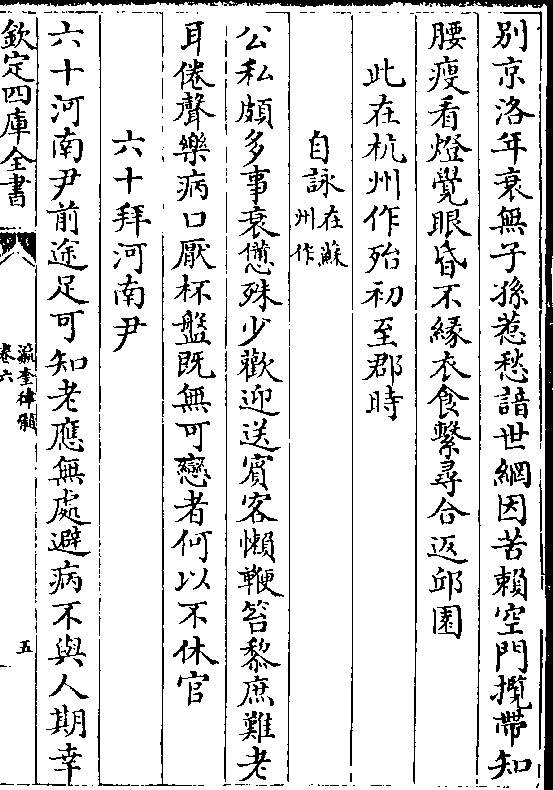 別京洛年衰無子孫惹愁諳世網因苦賴空門攬帶知
腰瘦看燈覺眼昏不緣衣食繫尋合返邱園
此在杭州作殆初至郡時
自詠在蘇州作
公私頗多事衰憊殊少歡迎送賓客懶鞭笞黎庶難老
耳倦聲樂病口厭杯盤既無可戀者何以不休官
六十拜河南尹
六十河南尹前途足可知老應無處避病不與人期幸
欽定四庫全書
瀛奎律髓
卷六
五